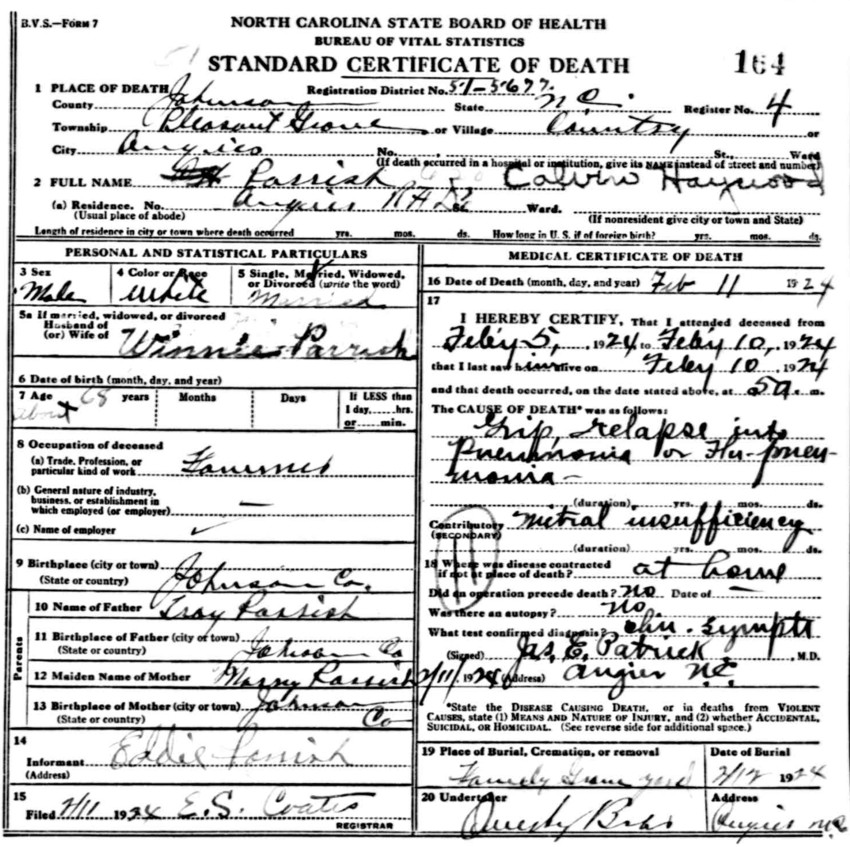 B.V.S.—FORM 7
NORTH CAROLINA STATE BOARD OF HEALTH
BUREAU OF VITAL STATISTICS
STANDARD CERTIFICATE OF DEATH
164
1 PLACE OF DEATH
Registration District No. 51-5677
County Johnson State N C. Register No. 4
Township Pleasant Grove or Village Country or
City Angier No. St., Ward
(If death occurred in a hospital or institution, give its NAME instead of street and number)
2 FULL NAME Parrish Calvin Haywood
(a) Residence. No. Angier R # St. Ward.
(Usual place of abode) (If nonresident give city or town and State)
Length of residence in city or town where death occurred yrs. mos. ds. How long in U. S. if of foreign birth? yrs. mos. ds.
PERSONAL AND STATISTICAL PARTICULARS
3 Sex 4 Color or Race 5 Single, Married, Widowed, or Divorced (write the word)
Male White Married
5a If married, widowed, or divorced
Husband of
(or) Wife of Winnie Parrish
6 Date of birth (month, day, and year)
7 Age about 68 years Months Days If LESS than 1 day, hrs. or min.
8 Occupation of deceased
(a) Trade, Profession, or particular kind of work Farmer
(b) General nature of industry, business, or establishment in which employed (or employer) —
(c) Name of employer
9 Birthplace (city or town)
(State or country) Johnson Co.
Parents
10 Name of Father Troy Parrish
11 Birthplace of Father (city or town)
(State or country) Johnson Co
12 Maiden Name of Mother Parrish
13 Birthplace of Mother (city or town) Johnson
(State or country) Co
14
Informant Eddie Parrish
(Address)
15
Filed 2/11 1924 E. S. Coats
REGISTRAR
MEDICAL CERTIFICATE OF DEATH
16 Date of Death (month, day, and year) Feb 11 1924
17
I HEREBY CERTIFY, That I attended deceased from
Feby 5, 1924 to Feby 10, 1924
that I last saw him alive on Feby 10 1924
and that death occurred, on the date stated above, at 5 a. m.
The CAUSE OF DEATH* was as follows:
Grip, relapse into
Pneumonia or Flu-pneu-
monia —
(duration) yrs. mos. ds.
Contributory mitral insufficiency
(SECONDARY)
11
(duration) yrs. mos. ds.
18 Where was disease contracted
if not at place of death? at home
Did an operation precede death? No Date of —
Was there an autopsy? No.
What test confirmed diagnosis? Clin. Sympts
(Signed) Jas. E. Patrick, M.D.
2/11, 1924 (Address) Angier N.C.
*State the DISEASE CAUSING DEATH, or in deaths from VIOLENT
CAUSES, state (1) MEANS AND NATURE OF INJURY, and (2) whether ACCIDENTAL,
SUICIDAL, OR HOMICIDAL. (See reverse side for additional space.)
19 Place of Burial, Cremation, or removal Date of Burial
Family Grave yard 2/12 1924
20 Undertaker Address
Angier N.C